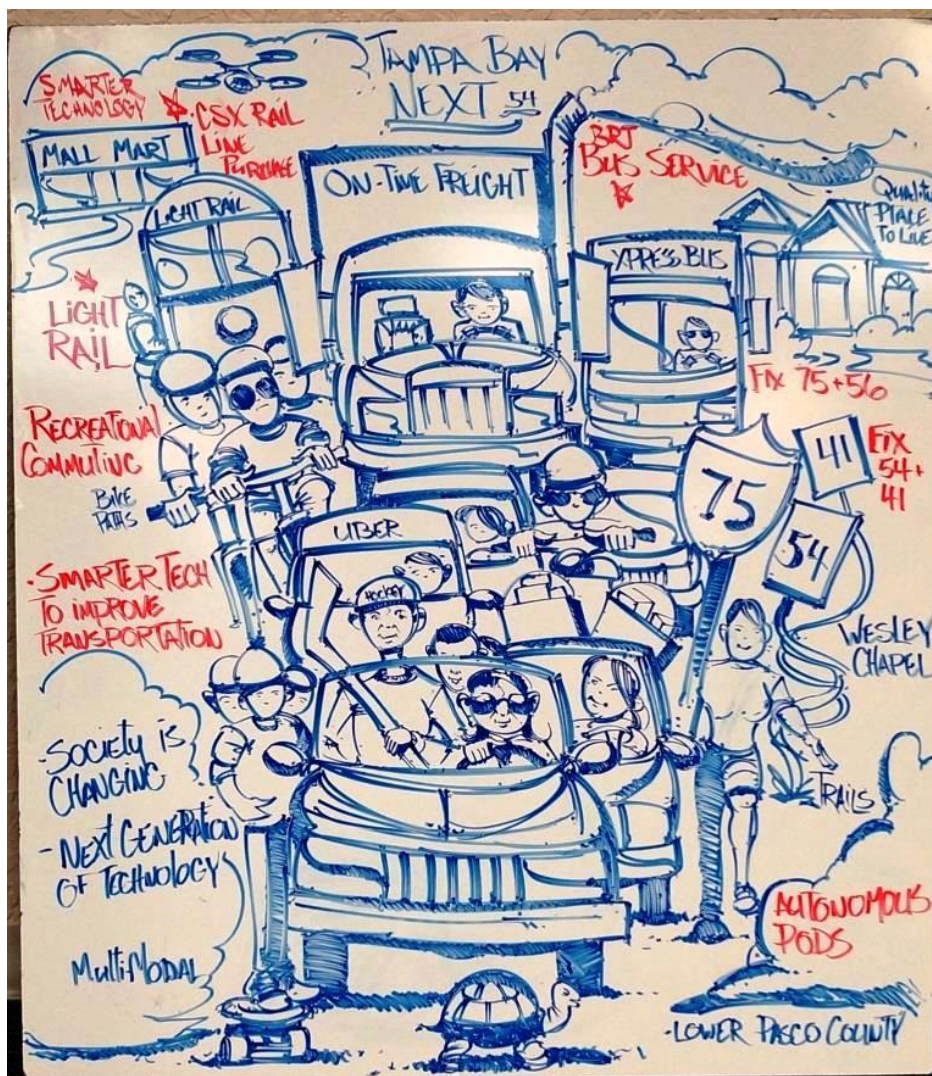 TAMPA BAY
NEXT 54
SMARTER
TECHNOLOGY
CSX RAIL
LINE
PURCHASE
MALL MART
LIGHT RAIL
ON-TIME FREIGHT
BRT
BUS SERVICE
XPRESS BUS
QUALITY
PLACE
TO LIVE
LIGHT
RAIL
FIX 75+56
RECREATIONAL
COMMUTING
BIKE
PATHS
75
41
54
FIX
54+
41
UBER
HOCKEY
·SMARTER TECH
TO IMPROVE
TRANSPORTATION
WESLEY
CHAPEL
·SOCIETY IS
CHANGING
-NEXT GENERATION
OF TECHNOLOGY
MULTI MODAL
TRAILS
AUTONOMOUS
PODS
·LOWER PASCO COUNTY